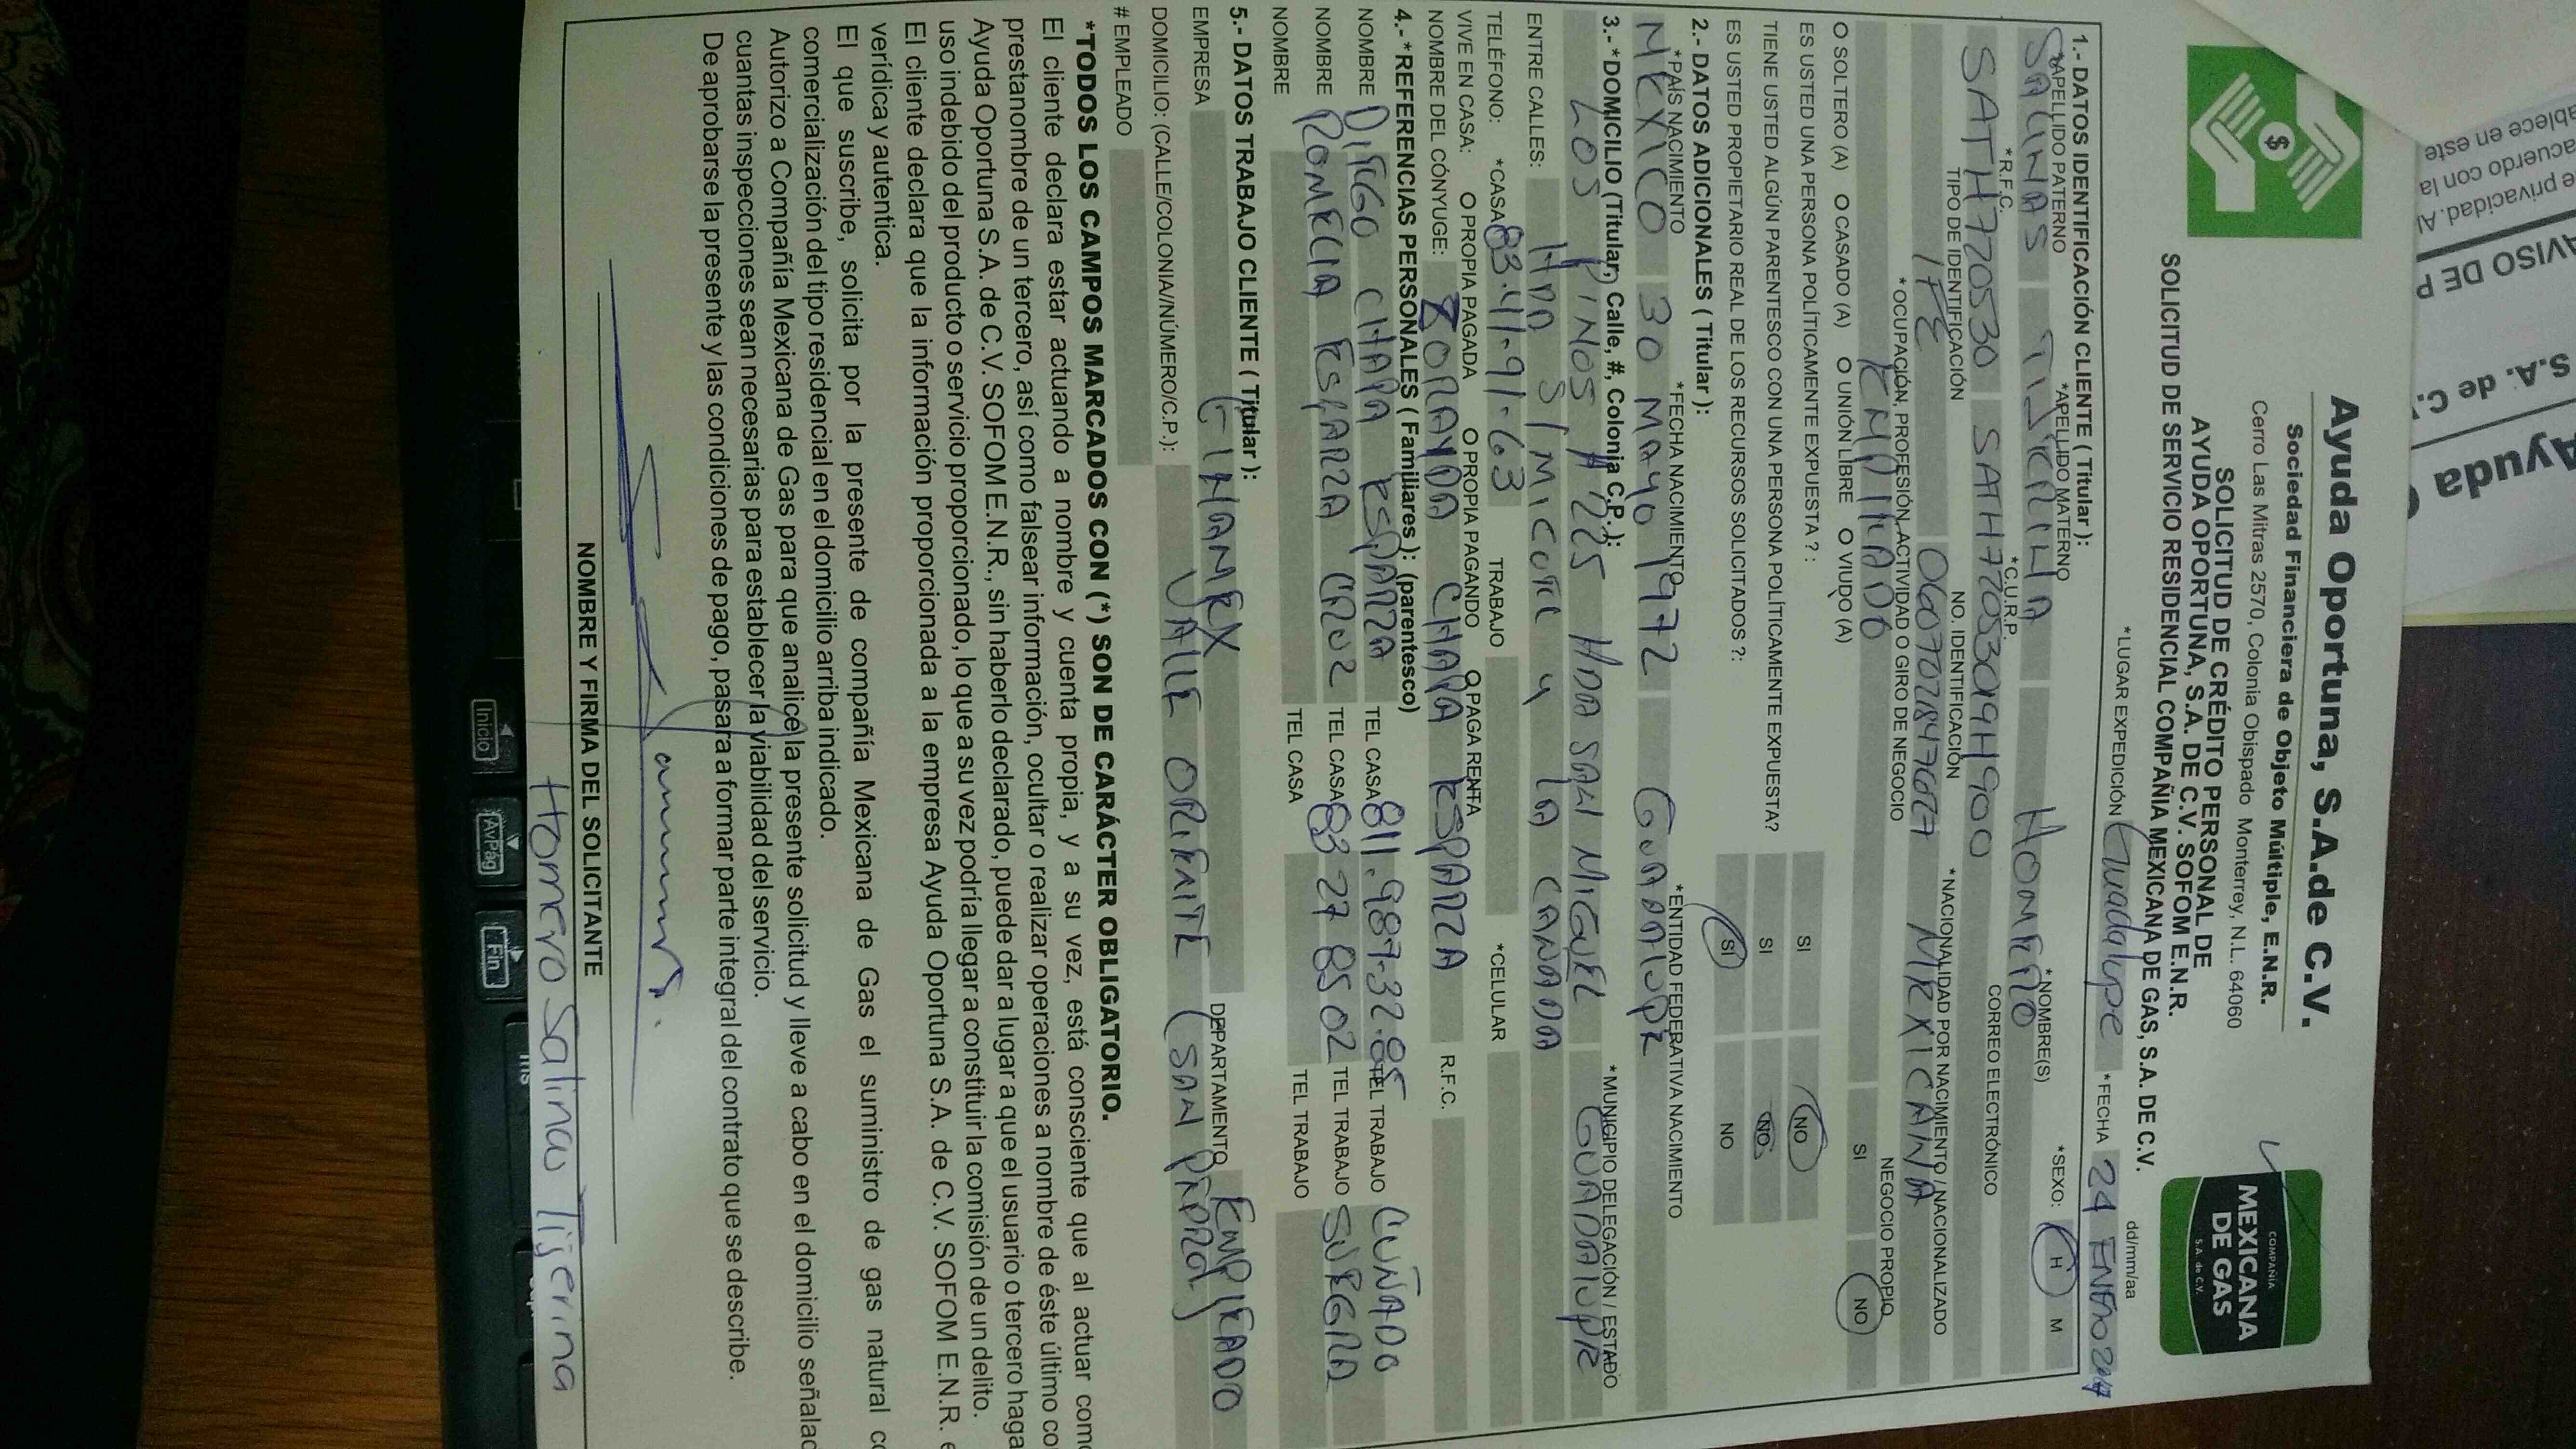 Ayuda Oportuna, S.A.de C.V.
Sociedad Financiera de Objeto Múltiple, E.N.R.
Cerro Las Mitras 2570, Colonia Obispado Monterrey, N.L. 64060
SOLICITUD DE CRÉDITO PERSONAL DE
AYUDA OPORTUNA, S.A. DE C.V. SOFOM E.N.R.
SOLICITUD DE SERVICIO RESIDENCIAL COMPAÑIA MEXICANA DE GAS, S.A. DE C.V.
COMPAÑÍA
MEXICANA
DE GAS
S.A. de C.V.
$
dd/mm/aa
*LUGAR EXPEDICIÓN Guadalupe *FECHA 24 ENERO 2017
1.- DATOS IDENTIFICACIÓN CLIENTE ( Titular ):
SALINAS TIJERINA HOMERO
*APELLIDO PATERNO *APELLIDO MATERNO *NOMBRE(S) *SEXO: H M
SATH720530 SATH720530
*R.F.C. *C.U.R.P. CORREO ELECTRÓNICO
IFE MEXICANA
TIPO DE IDENTIFICACIÓN NO. IDENTIFICACIÓN *NACIONALIDAD POR NACIMIENTO / NACIONALIZADO
EMPLEADO SI NO
*OCUPACIÓN, PROFESIÓN, ACTIVIDAD O GIRO DE NEGOCIO NEGOCIO PROPIO
O SOLTERO (A) O CASADO (A) O UNIÓN LIBRE O VIUDO (A)
ES USTED UNA PERSONA POLÍTICAMENTE EXPUESTA ? : SI NO
TIENE USTED ALGÚN PARENTESCO CON UNA PERSONA POLÍTICAMENTE EXPUESTA? SI NO
ES USTED PROPIETARIO REAL DE LOS RECURSOS SOLICITADOS ?: SI NO
2.- DATOS ADICIONALES ( Titular ):
*PAÍS NACIMIENTO *FECHA NACIMIENTO *ENTIDAD FEDERATIVA NACIMIENTO
MEXICO 30 MAYO 1972 GUADALUPE
3.- *DOMICILIO (Titular, Calle, #, Colonia C.P.): *MUNICIPIO DELEGACIÓN / ESTADO
LOS PINOS # 225 HDA SAN MIGUEL GUADALUPE
ENTRE CALLES: HDA SIMICOTE Y LA CANADA
TELÉFONO: *CASA 83.41.91.63 TRABAJO *CELULAR
VIVE EN CASA: O PROPIA PAGADA O PROPIA PAGANDO O PAGA RENTA
NOMBRE DEL CÓNYUGE: ZORAYDA CHAPA ESPARZA R.F.C.
4.- *REFERENCIAS PERSONALES ( Familiares ): (parentesco)
NOMBRE DIEGO CHAPA ESPARZA TEL CASA 811.987.32.05 TEL TRABAJO CUÑADO
NOMBRE ROMELIA ESPARZA CRUZ TEL CASA 83 27 85 02 TEL TRABAJO SUEGRA
NOMBRE TEL CASA TEL TRABAJO
5.- DATOS TRABAJO CLIENTE ( Titular ):
EMPRESA GINAMEX DEPARTAMENTO EMPLEADO
DOMICILIO: (CALLE/COLONIA//NÚMERO/C.P.): VALLE ORIENTE (SAN PEDRO)
# EMPLEADO
*TODOS LOS CAMPOS MARCADOS CON (*) SON DE CARÁCTER OBLIGATORIO.
El cliente declara estar actuando a nombre y cuenta propia, y a su vez, está consciente que al actuar como
prestanombre de un tercero, así como falsear información, ocultar o realizar operaciones a nombre de éste último co
Ayuda Oportuna S.A. de C.V. SOFOM E.N.R., sin haberlo declarado, puede dar a lugar a que el usuario o tercero haga
uso indebido del producto o servicio proporcionado, lo que a su vez podría llegar a constituir la comisión de un delito.
El cliente declara que la información proporcionada a la empresa Ayuda Oportuna S.A. de C.V. SOFOM E.N.R. e
verídica y autentica.
El que suscribe, solicita por la presente de compañía Mexicana de Gas el suministro de gas natural co
comercialización del tipo residencial en el domicilio arriba indicado.
Autorizo a Compañía Mexicana de Gas para que analice la presente solicitud y lleve a cabo en el domicilio señalad
cuantas inspecciones sean necesarias para establecer la viabilidad del servicio.
De aprobarse la presente y las condiciones de pago, pasara a formar parte integral del contrato que se describe.
NOMBRE Y FIRMA DEL SOLICITANTE
Homero Salinas Tijerina
Inicio
AvPág
Fin
Ayuda
S.A. de C.
AVISO DE P
e privacidad. Al
acuerdo con la
ablece en este